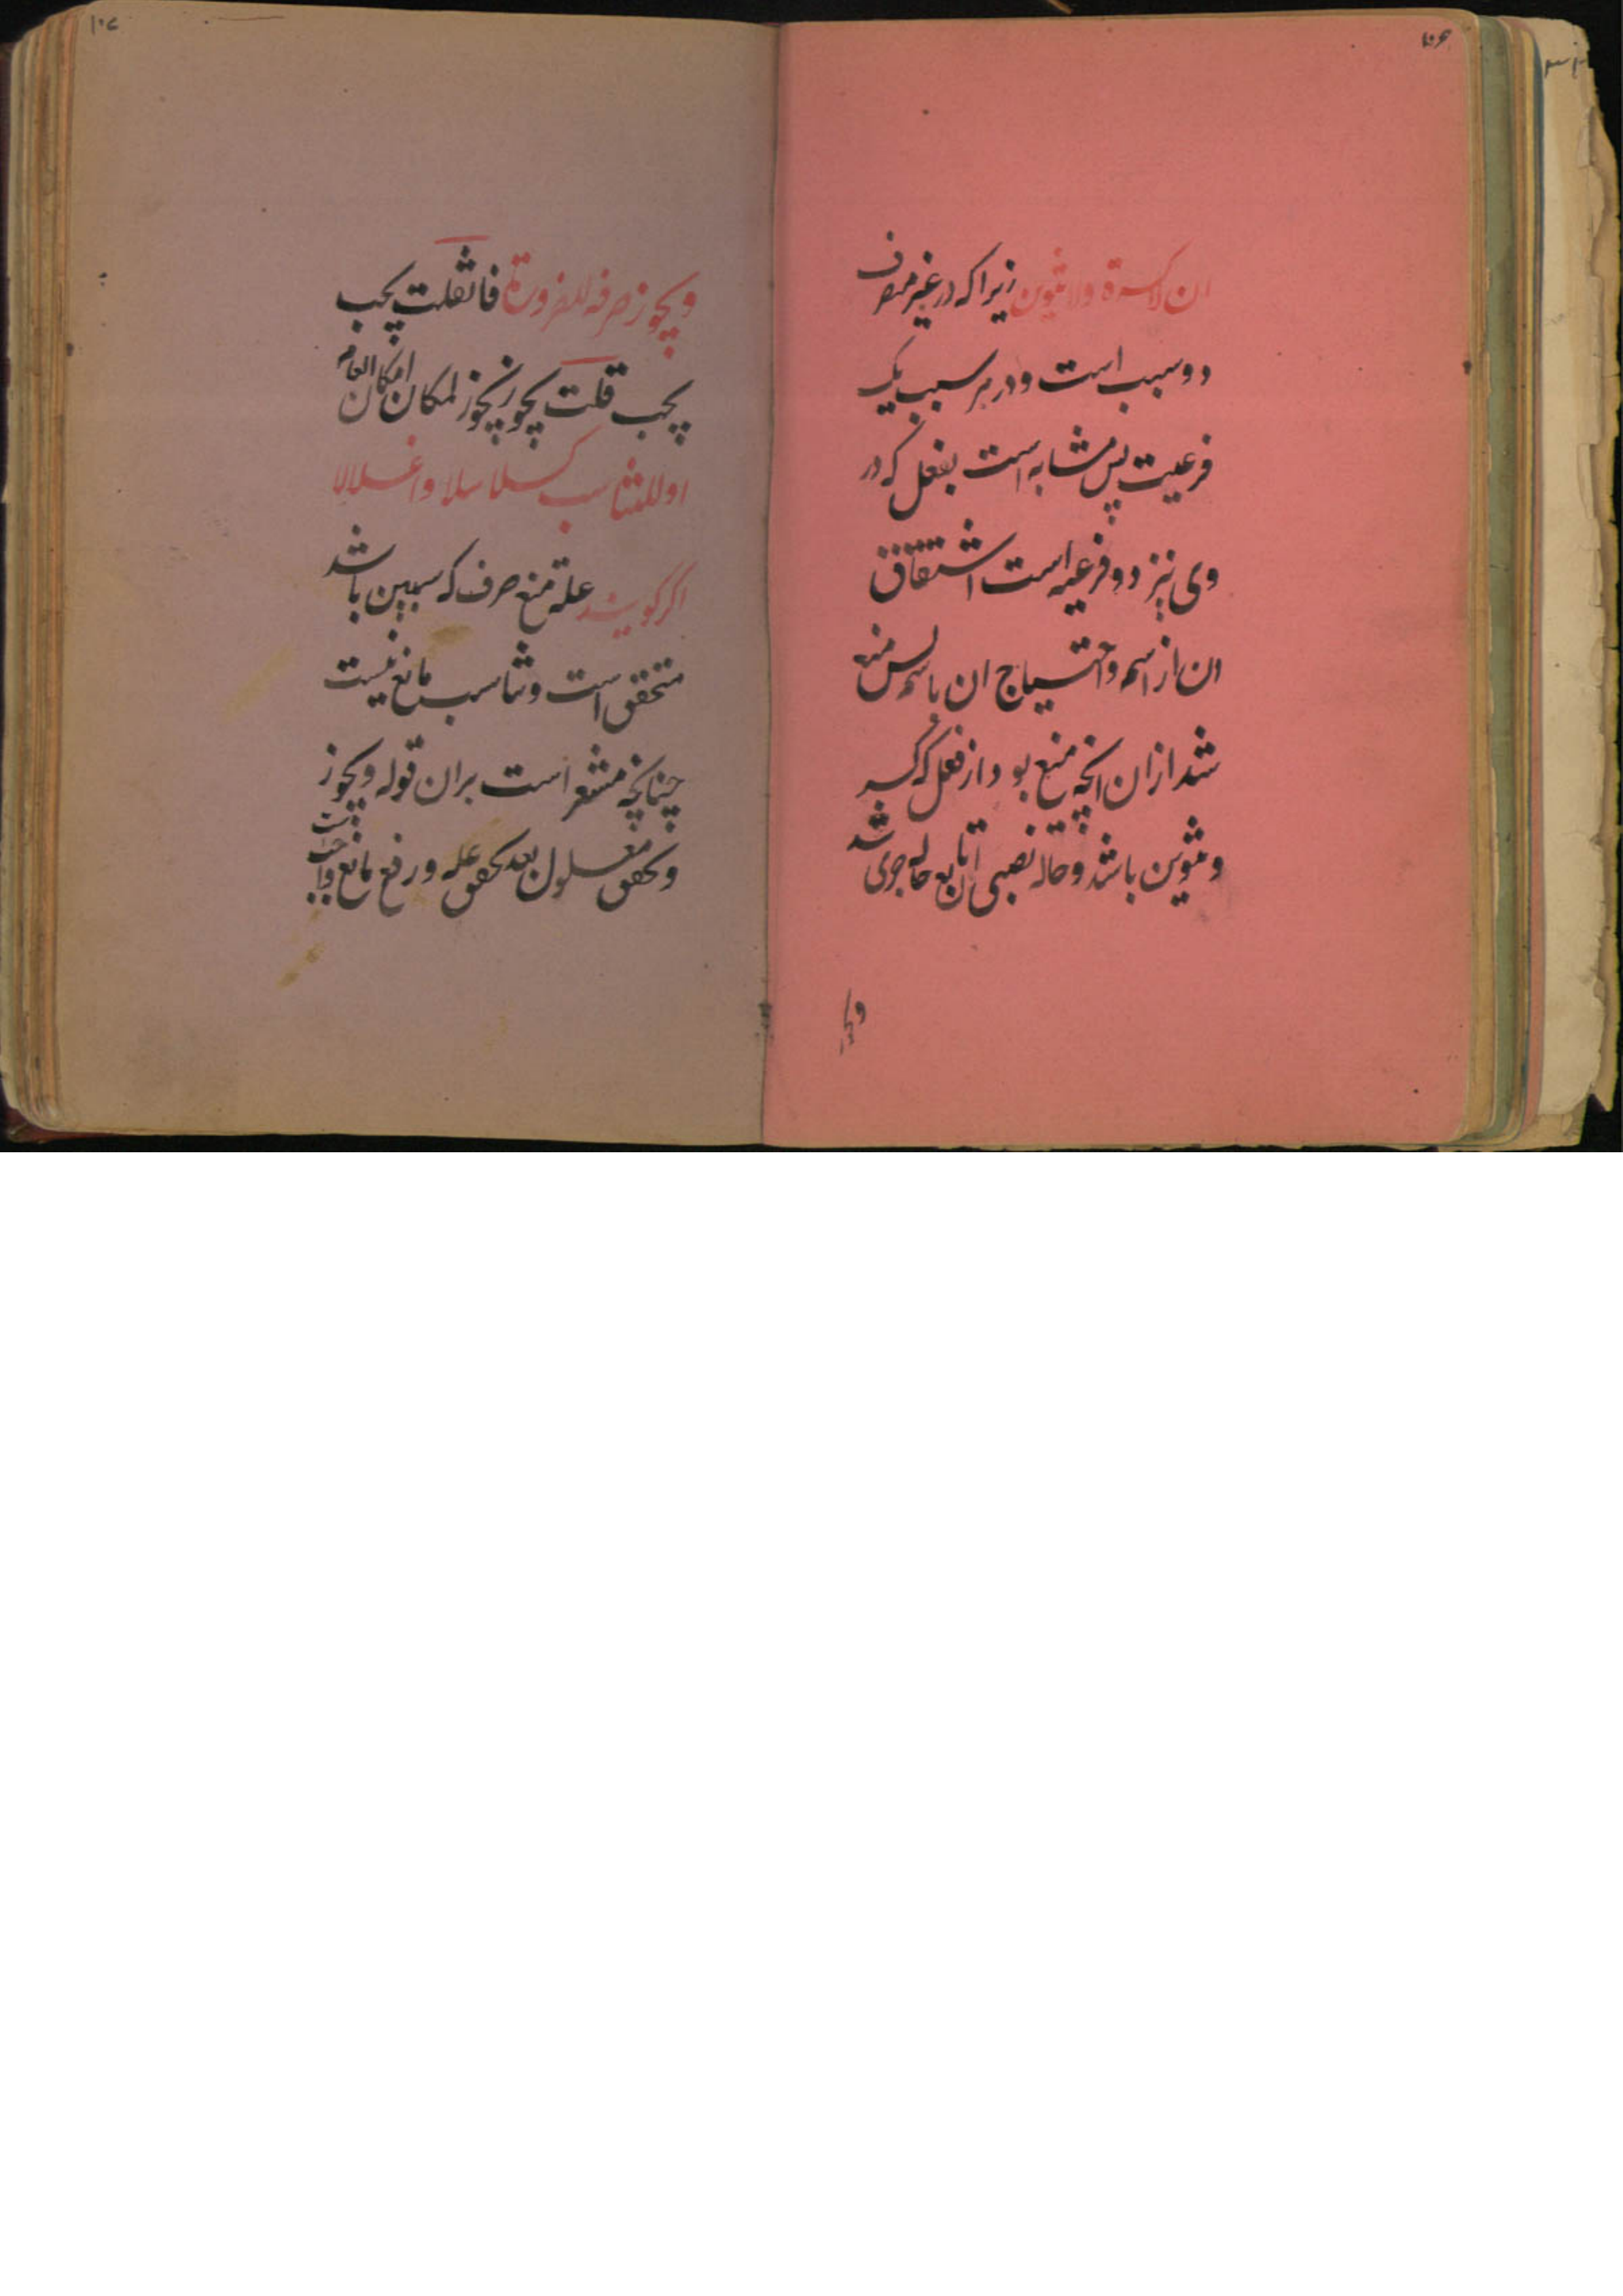 ان لا کسرة ولا تنوین زیرا که در غیر منصرف
دو سبب است و در هر سبب یک
فرعیت پس مشابه است بفعل که در
وی نیز دو فرعیه است اشتقاق
ان از اسم و احتیاج ان باسم پس منع
شد ازان انچه منع بود از فعل که کسر
و تنوین باشد و حاله نصبی تابع حاله جری شد
ویجوز
ویجوز صرفه للضرورة فان قلت یجب
یجب قلت یجوز یجوز لمکان امکان العام
او للتناسب کسلاسلا واغلالا
اکر کویند علة منع صرف که سببین باشد
متحقق است و تناسب مانع نیست
چنانچه مشعر است بران قوله ویجوز
و تحقق معلول بعد تحقق علة و رفع مانع واجب است